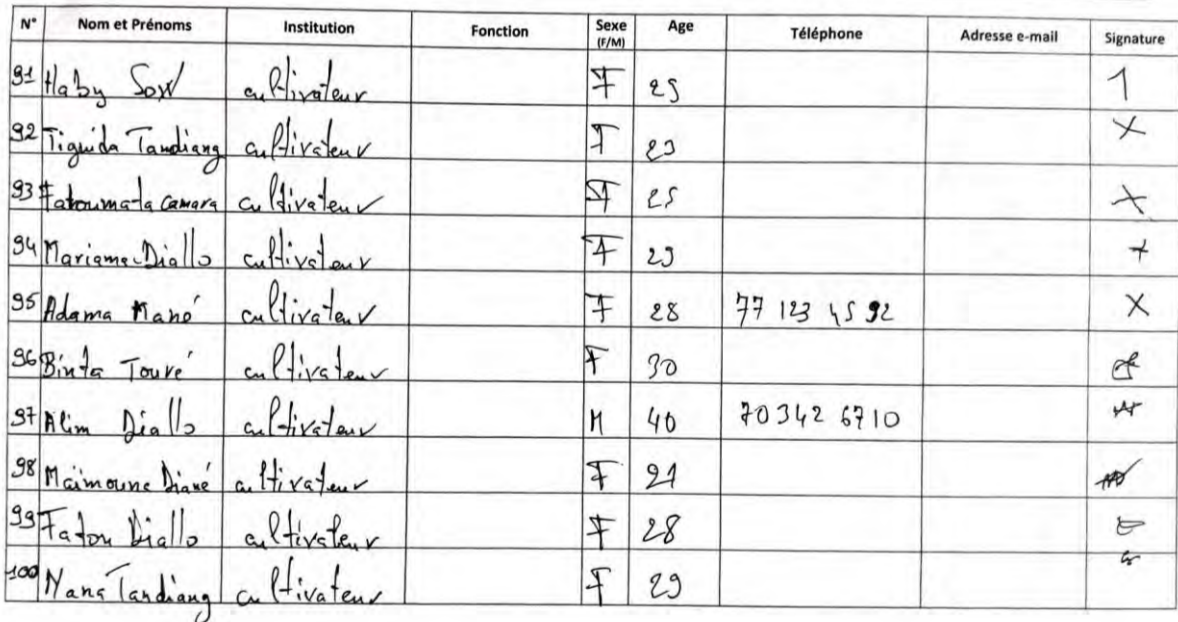 N° Nom et Prénoms Institution Fonction Sexe (F/M) Age Téléphone Adresse e-mail Signature
91 Haby Sow cultivateur F 25
92 Tiguida Tandiang cultivateur F 23
93 Fatoumata Camara cultivateur F 25
94 Mariama Diallo cultivateur F 29
95 Adama Mané cultivateur F 28 77 123 45 92 X
96 Binta Touré cultivateur F 30
97 Alim Diallo cultivateur M 40 70 342 67 10
98 Maimouna Diané cultivateur F 21
99 Fatou Diallo cultivateur F 28
100 Nana Tandiang cultivateur F 29